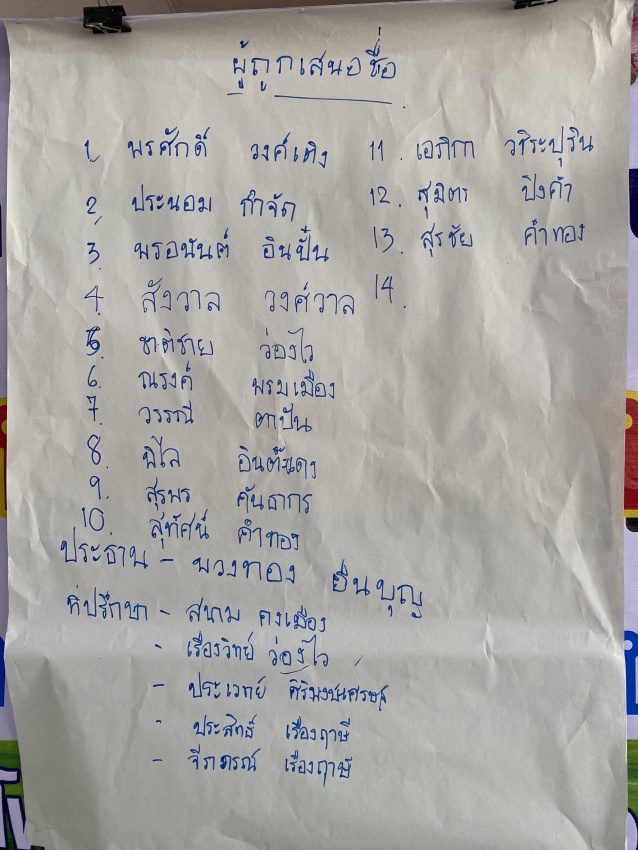 ผู้ถูกเสนอชื่อ
1. พรศักดิ์ วงศ์เติง
2. ประนอม กำจัด
3. พรอนันต์ อินปั๋น
4. สังวาล วงศ์วาล
5. ชาติชาย ว่องไว
6. ณรงค์ พรมเมือง
7. วรรณี ตาปัน
8. พิไล
9. สุรพร คันธากร
10. สุทัศน์ คำทอง
11. เอภิกา วชิระปุริน
12. สุมิตร ปิงคำ
13. สุรชัย คำทอง
14.
ประธาน - พวงทอง ยืนบุญ
ที่ปรึกษา - สนาม คงเมือง
- เรืองวิทย์ ว่องไว
- ประเวทย์
- ประสิทธิ์ เรืองฤาษี
- จีราภรณ์ เรืองฤาษี